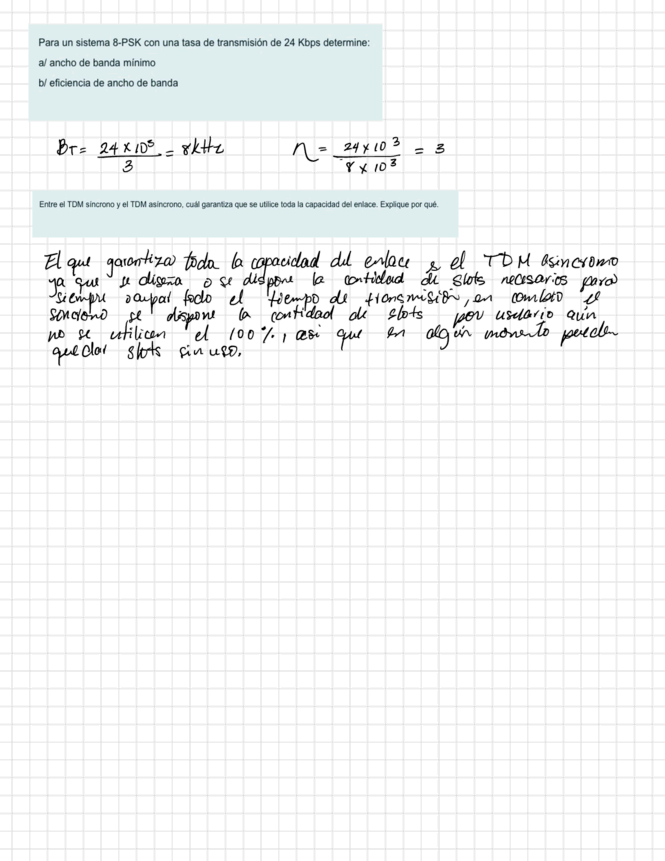 Para un sistema 8-PSK con una tasa de transmisión de 24 Kbps determine:
a/ ancho de banda mínimo
b/ eficiencia de ancho de banda
BT = 24 x 10³ / 3 = 8kHz    η = 24 x 10³ / 8 x 10³ = 3
Entre el TDM síncrono y el TDM asíncrono, cuál garantiza que se utilice toda la capacidad del enlace. Explique por qué.
El que garantiza toda la capacidad del enlace es el TDM asincrono
ya que se diseña o se dispone la cantidad de slots necesarios para
siempre ocupar todo el tiempo de transmisión, en cambio el
sincrono se dispone la cantidad de slots por usuario aún
no se utilicen el 100%, asi que en algún momento pueden
quedar slots sin uso.